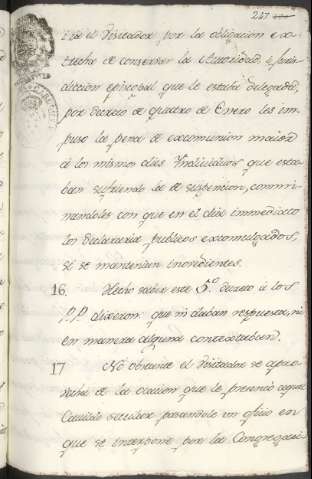 217
el Visitador por la obligacion es-
trecha de conservar la Autoridad, é juris-
diccion episcopal que le estaba delegada,
por decreto de quatro de Enero les im-
puso la pena de excomunion maior
á los mismos dies Yndividuos que esta-
ban sufriendo la de suspension, conmi-
nandoles con que en el dia immediato
los declararia publicos excomulgados,
si se mantenian inovedientes.
16. Hecho saber este 5.º decreto á los
P.P. dixeron que ni daban respuesta, ni
en manera alguna contextaban.
17 No obstante el Visitador se apro-
vecho de la ocasion que le presentó aquel
Cavildo secular pasandole un oficio en
que se interpone por la Congregaci-